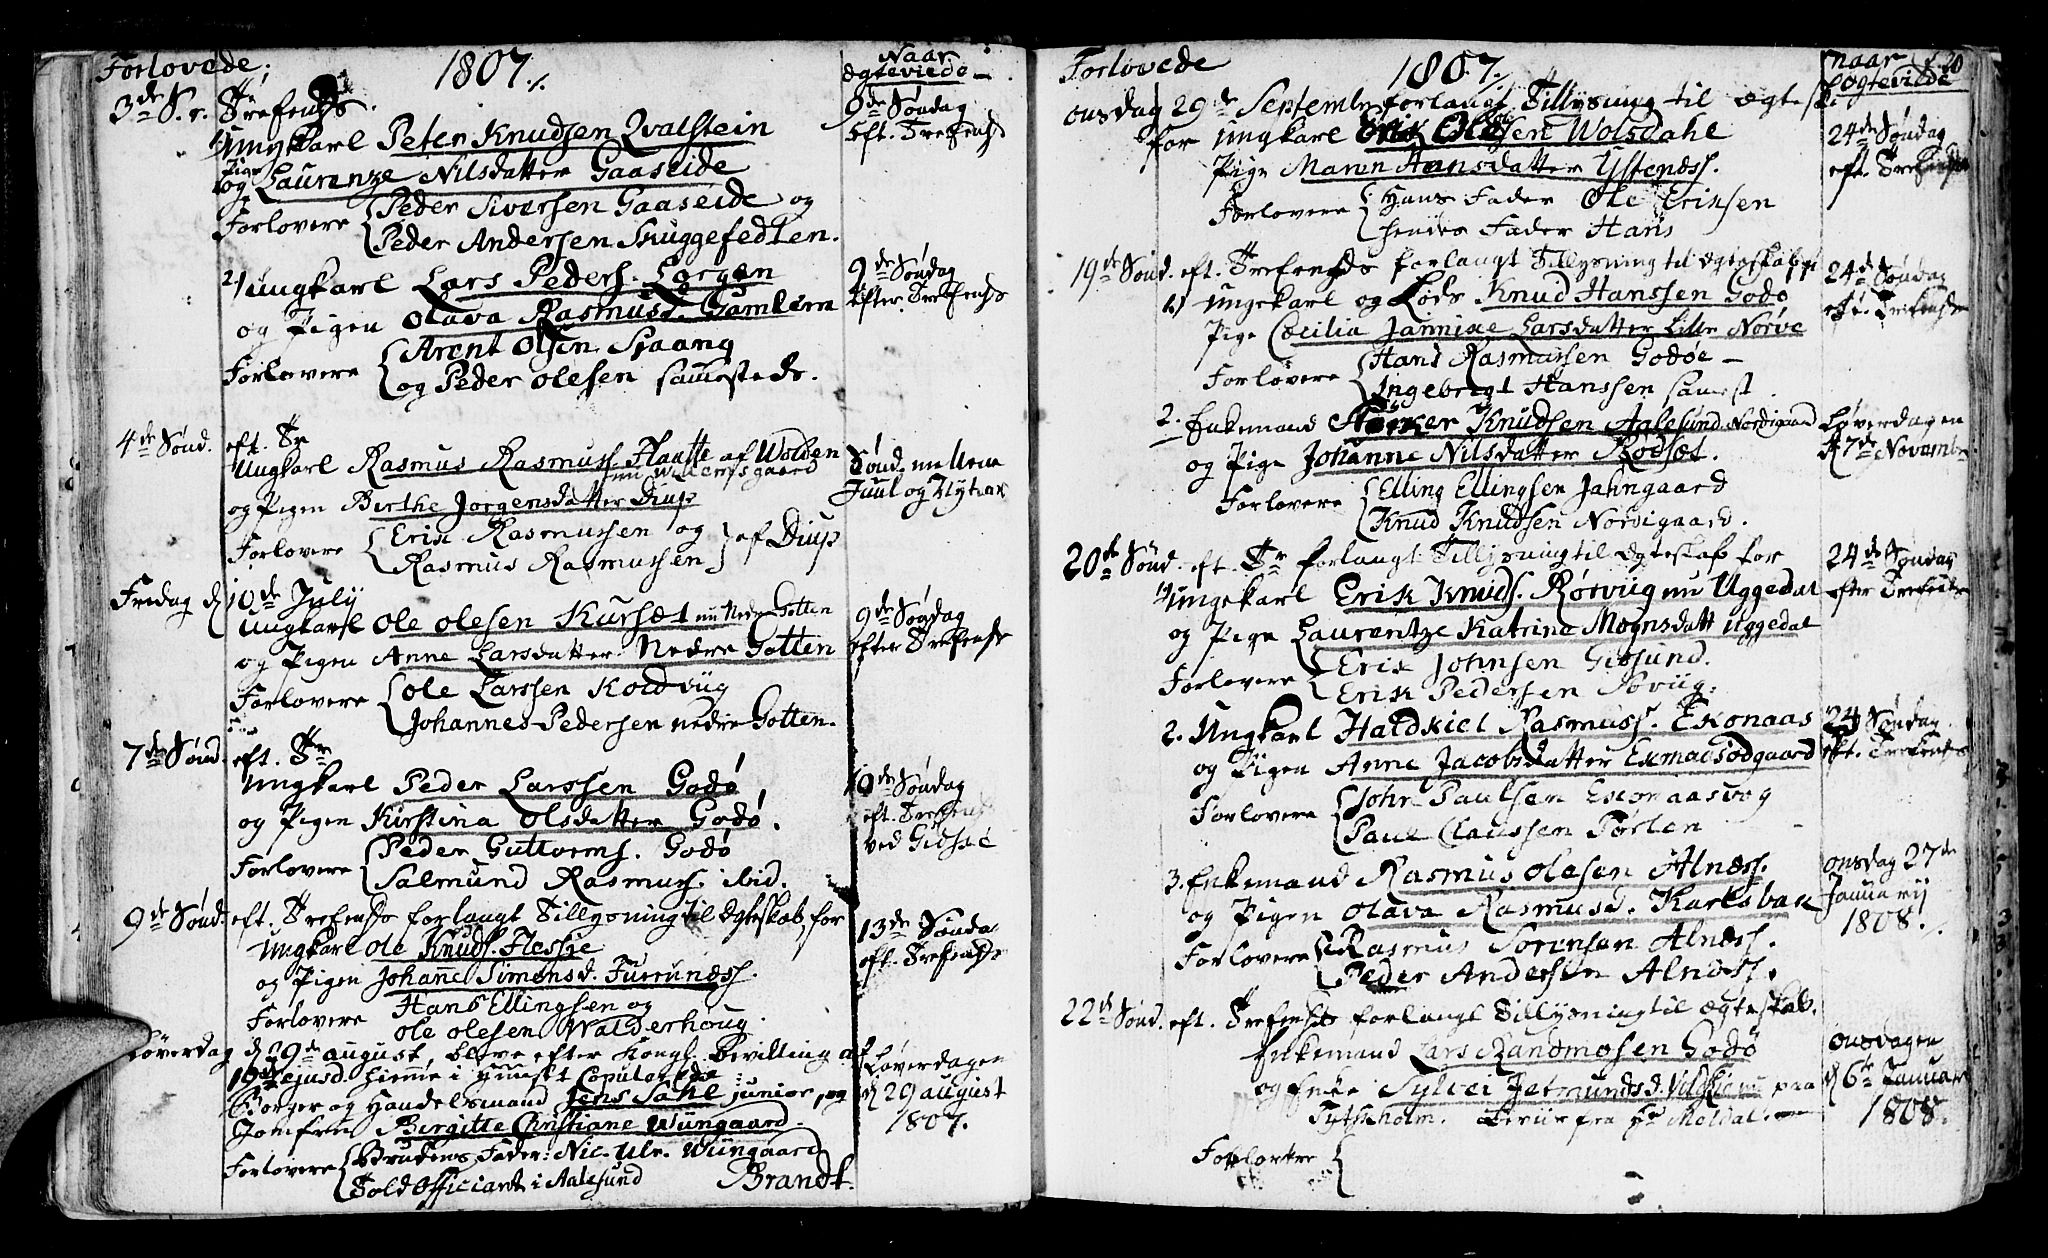 Forlovede.
1807./.
Naar
Ægteviede
3de S. e. Trefenhds
1/ Ungkarl Peter Knudsen Qvalstein
og Pige Laurenze Nilsdatter Gaaseide
Forlovere Peder Siversen Gaaseide og
Peder Andersen Skuggefedten.
9de Søndag
Eft. Trefenhds
2/ Ungkarl Lars Peders. Lorgen
og Pigen Olava Rasmusd. Gamlem
Forlovere Arent Olsen Spaang
og Peder Olesen sammesteds.
9de Søndag
Efter Trefenhds
4de Sønd. eft. Tr
Ungkarl Rasmus Rasmuss. Flaatte af Wolden
nu Willemsgaard
og Pigen Birthe Jørgensdatter Diup
Forlovere Erik Rasmussen og
Rasmus Rasmussen af Diup
Sønd. mellem
Juul og Nytaar
Fredag d 10de July
Ungkarl Ole Olesen Kursæt nu Nedre Gotten
og Pigen Anne Larsdatter Nedre Gotten
Forlovere Ole Larssen Koldviig
Johannes Pedersen nedre Gotten.
9de Søndag
efter Trefenhds
7de Sønd. eft. Tr
Ungkarl Peder Larssen Godø
og Pigen Kirstina Olsdatter Godø.
Forlovere Peder Guttorms. Godø
Salmund Rasmuss. ibid.
10de Søndag
eft. Trefenh
ved Gidske
9de Sønd. eft. Trefenhds forlangt Tillysning til Egteskab, for
Ungkarl Ole Knuds. Flessie
og Pigen Johanne Simonsd. Furunæss.
Forlovere Hans Ellingsen og
Ole Olesen Walderhoug.
13de Sønda
eft. Trefenhds
Løverdag d 29de august, bleve efter Kongl. Bevilling af
19de ejusd. hiemme i Huuset Copulerede
Borger og Handelsmand Jens Dahl junior, og
Jomfru Birgitte Christiane Wiingaard.
Forlovere Brudens Fader: Nic. Ulr. Wiingaard
Told Officiant i Aalesund Brandt.
Løverdagen
d 29 august
1807.
Forlovede
1807.
naar
Egteviede
20
onsdag 29de Septembr forlangt Tillysning til Ægtesk.
for Ungkarl Erik Olesen Wolsdahl
Pige Maren Hansdatter Ystenæss.
Forlovere Hans Fader Ole Eriksen
hendes Fader Hans
24de Søndag
eft. Trefenhds
19de Sønd. eft. Trefenhds forlangt Tillysning til Egteskab for
1/ Ungekarl og Lods Knud Hanssen Godø
Pige Cæcilia Jannike Larsdatter Lille Nørve
Forlovere Hans Rasmussen Godøe
Ingebrigt Hanssen samest.
24de Søndag
eft. Trefenhds
2. Enkemand Knudsen Aalesund Nordigaard
og Pige Johanne Nilsdatter Rødset.
Forlovere Elling Ellingsen Jahngaard
Knud Knudsen Nordigaard.
Løverdagen
d 7de Novembr
20de Sønd. eft. Tr forlangt Tillysning til Egteskab for
1/ Ungekarl Erik Knuds. Rørviig nu Uggedal
og Pige Laurentze Katrine Mognsdatt Uggedal
Forlovere Erik Johnsen Gidsund.
Erik Pedersen Noviig.
24de Søndag
efter Trefenhds
2. Ungkarl Haldkiel Rasmuss. Exonaas
og Pigen Anne Jacobsdatter Exmadsødgaard
Forlovere John Paulsen Exonaasvog
Paul Claussen Tørlen
24 Søndag
eft. Trefenhds
3. Enkemand Rasmus Olesen Alnæss.
og Pigen Olava Rasmusd. Karlsbak
Forlovere Rasmus Sørensen Alnæss.
Peder Andersen Alnæss.
onsdag 27de
Januarij
1808.
22de Sønd. eft. Trefenhds forlangt Tillysning til Ægteskab.
Enkemand Lars Randmosen Godø
og Enke Sylvei Jetmundsd. Valskie nu paa
Tyttholm. Beviis fra Hr Moldal.
Forlovere
onsdagen
d 6te Januar
1808.